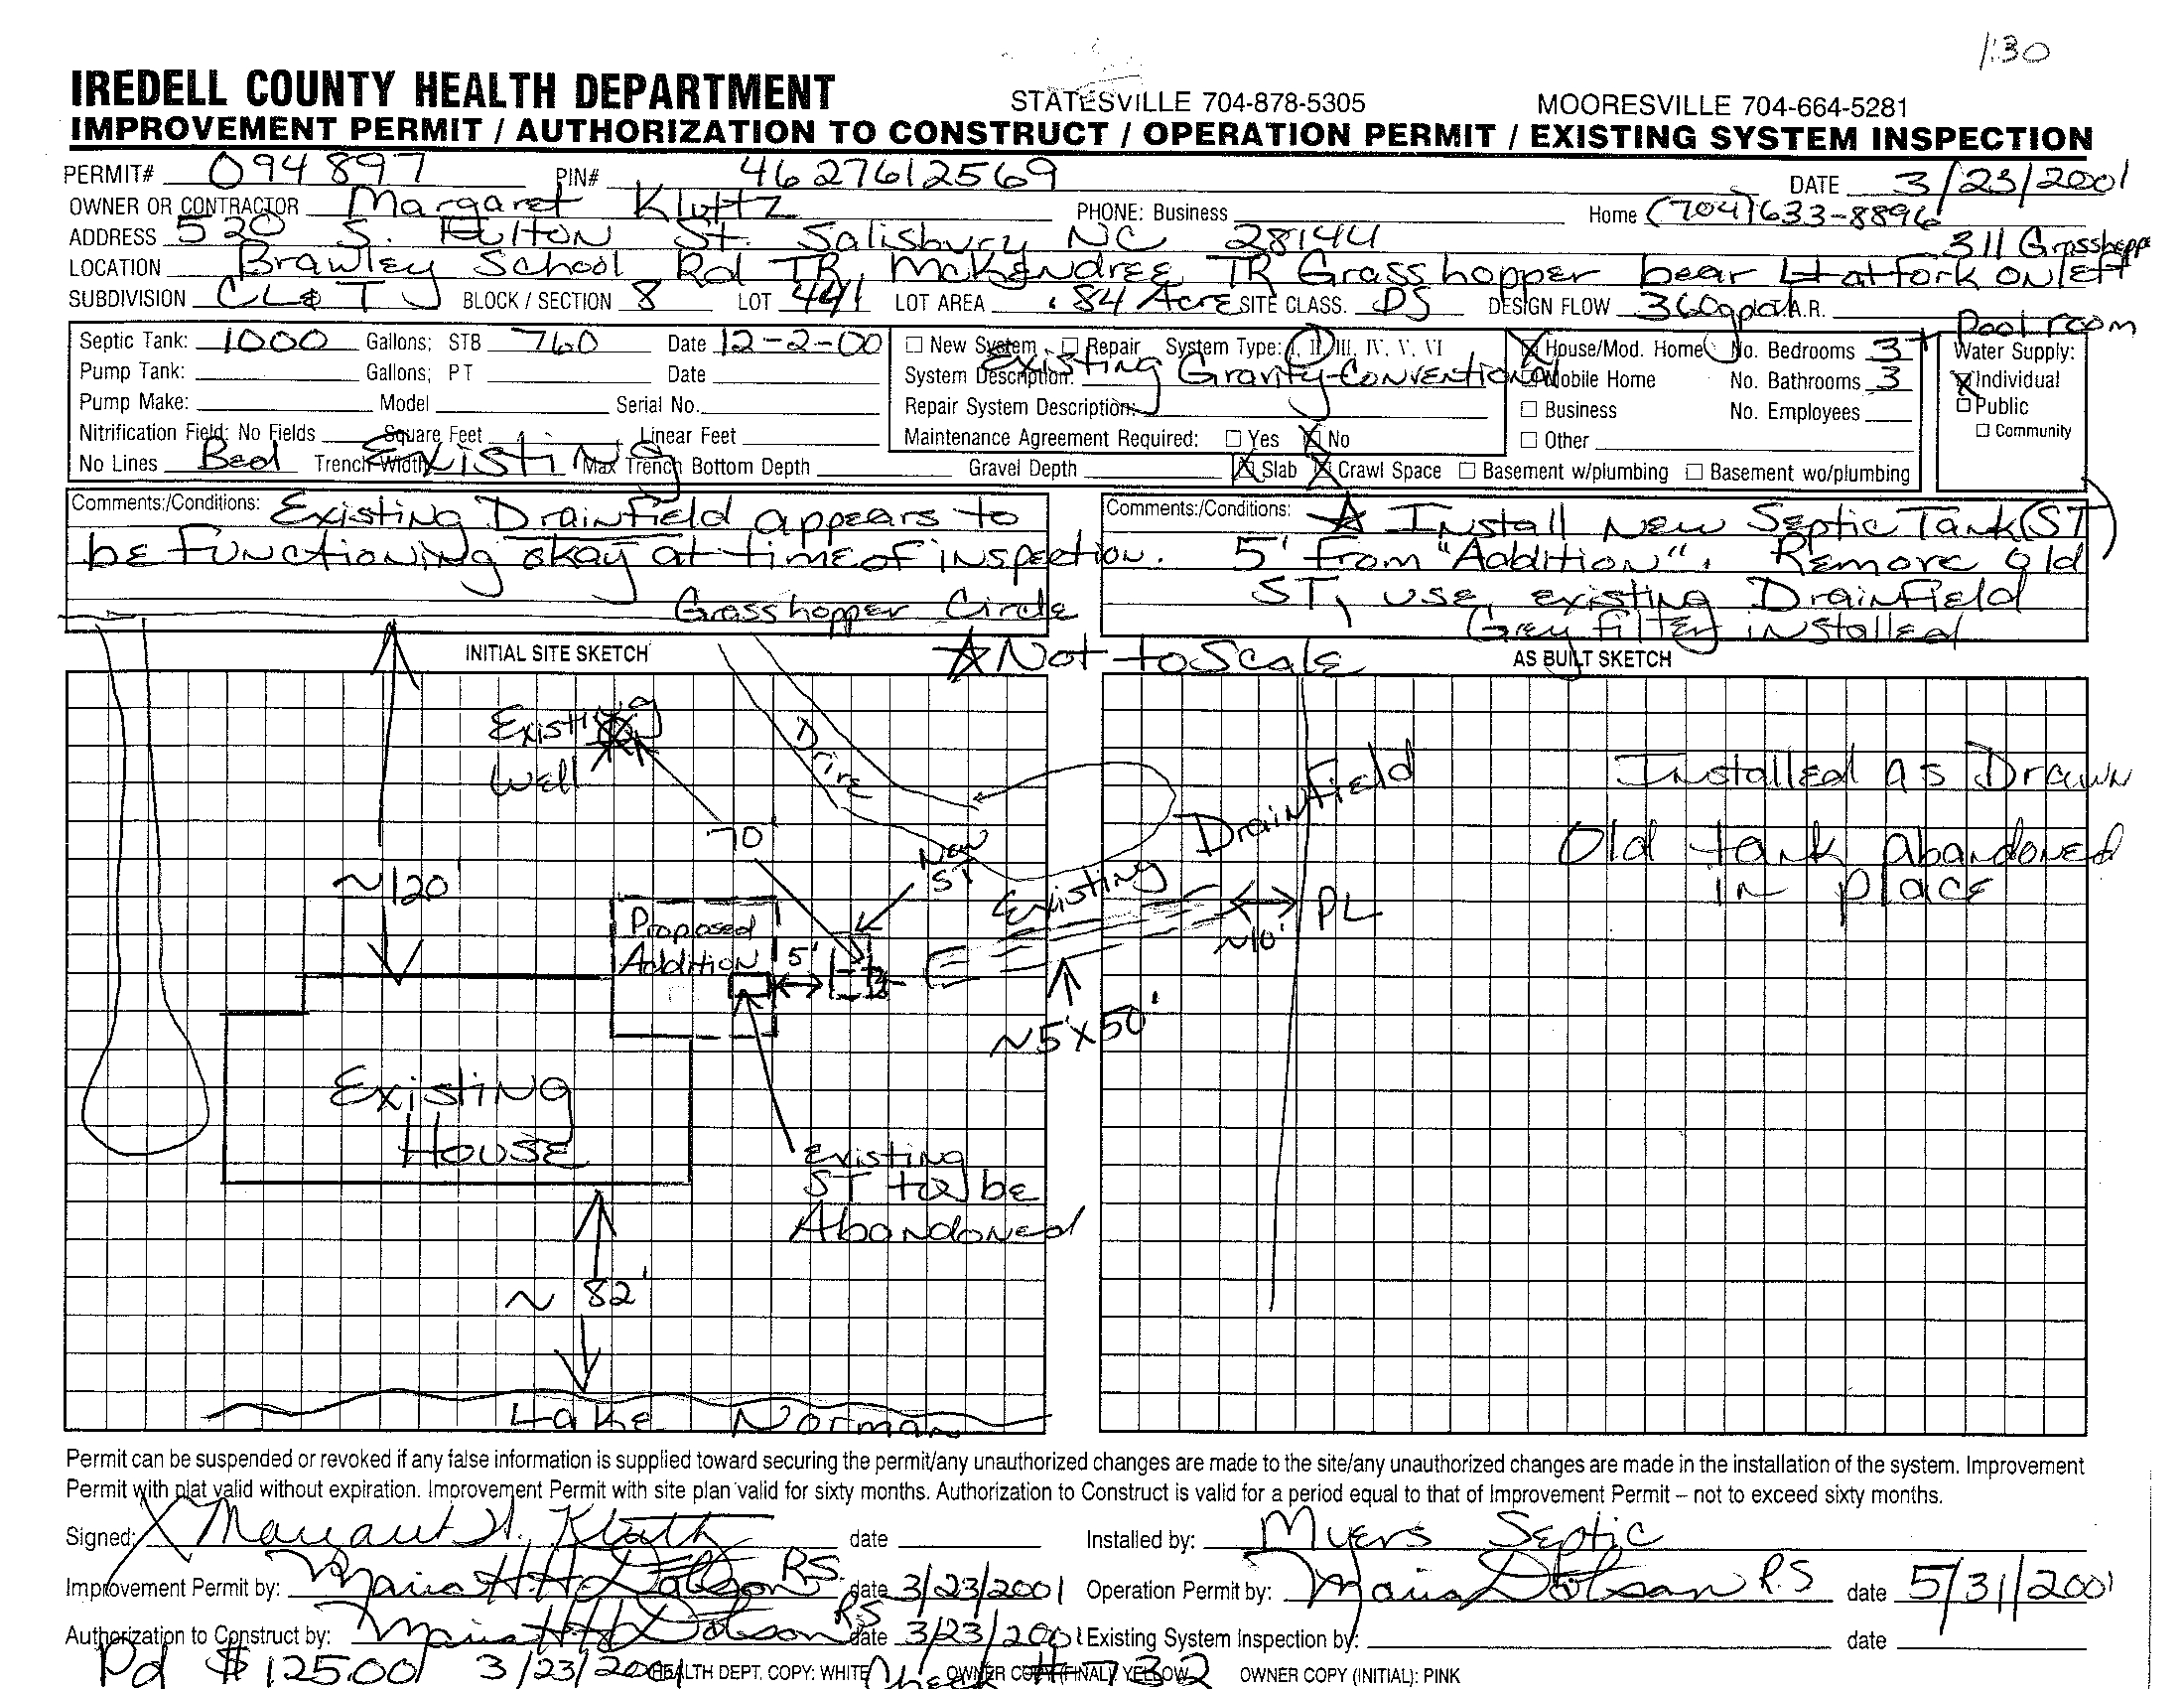 1:30
IREDELL COUNTY HEALTH DEPARTMENT STATESVILLE 704-878-5305 MOORESVILLE 704-664-5281
IMPROVEMENT PERMIT / AUTHORIZATION TO CONSTRUCT / OPERATION PERMIT / EXISTING SYSTEM INSPECTION
PERMIT# 094897 PIN# 4627612569 DATE 3/23/2001
OWNER OR CONTRACTOR Margaret Kluttz PHONE: Business Home (704)633-8896
ADDRESS 520 S. Fulton St. Salisbury NC 28144
311 Grasshopper
LOCATION Brawley School Rd TR McKendree TR Grasshopper bear Lt at fork on left
SUBDIVISION CL&T BLOCK / SECTION 8 LOT 441 LOT AREA .84 Acre SITE CLASS. PS DESIGN FLOW 360gpd L.T.A.R.
Septic Tank: 1000 Gallons; STB 760 Date 12-2-00
Pump Tank: Gallons; PT Date
Pump Make: Model Serial No.
Nitrification Field: No Fields Square Feet Linear Feet
No Lines Bed Trench Width Existing Max Trench Bottom Depth Gravel Depth
New System Repair System Type: I, II, III, IV, V, VI
System Description: Existing Gravity-Conventional
Repair System Description:
Maintenance Agreement Required: Yes No
Slab Crawl Space Basement w/plumbing Basement wo/plumbing
House/Mod. Home No. Bedrooms 3 + Pool room
Mobile Home No. Bathrooms 3
Business No. Employees
Other
Water Supply:
Individual
Public
Community
Comments:/Conditions: Existing Drainfield appears to
be functioning okay at time of inspection.
Grasshopper Circle
Comments:/Conditions: Install New Septic Tank (ST)
5' from "Addition". Remove old
ST, use existing Drainfield
Grey filter installed
INITIAL SITE SKETCH Not to Scale AS BUILT SKETCH
Existing
Well
Drive
70'
New
ST
Existing Drainfield
PL
~10'
~120'
Proposed
Addition
5'
~5'x50'
Existing
House
Existing
ST to be
Abandoned
~ 82'
Lake Norman
Installed as Drawn
Old tank abandoned
in place
Permit can be suspended or revoked if any false information is supplied toward securing the permit/any unauthorized changes are made to the site/any unauthorized changes are made in the installation of the system. Improvement
Permit with plat valid without expiration. Improvement Permit with site plan valid for sixty months. Authorization to Construct is valid for a period equal to that of Improvement Permit – not to exceed sixty months.
Signed: X Margaret H. Kluttz date Installed by: Myers Septic
Improvement Permit by: Maria H. H. Dotson R.S. date 3/23/2001 Operation Permit by: Maria Dotson R.S date 5/31/2001
Authorization to Construct by: Maria H H Dotson R.S date 3/23/2001 Existing System Inspection by: date
Pd $125.00 3/23/2001 HEALTH DEPT. COPY: WHITE Check # 732 OWNER COPY (FINAL) YELLOW OWNER COPY (INITIAL): PINK